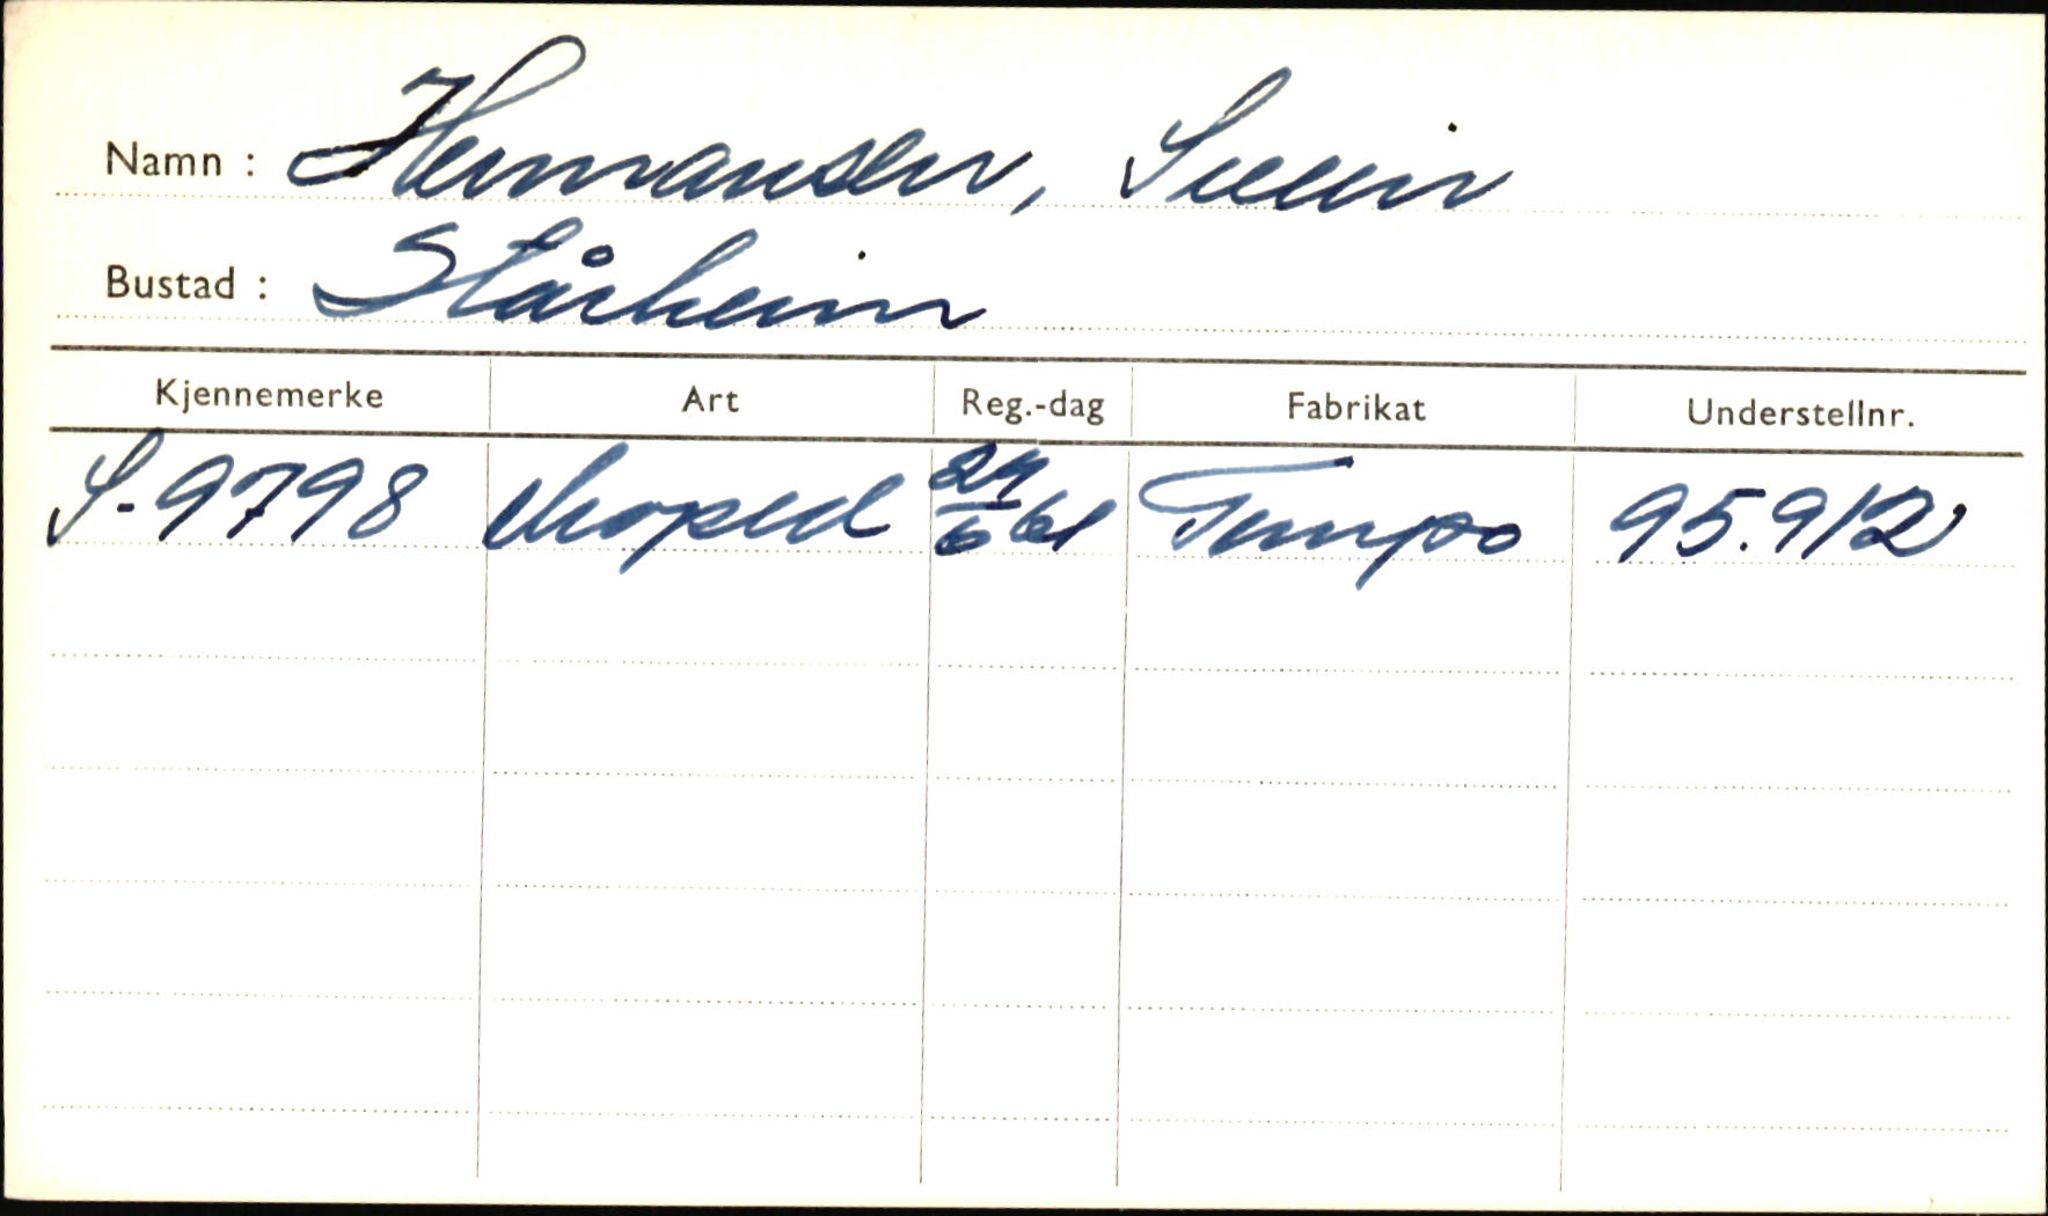 Namn : Hermansen, Svein
Bustad : Stårheim
Kjennemerke Art Reg.-dag Fabrikat Understellnr.
S-9798 Moped 24/6 61 Tempo 95.912